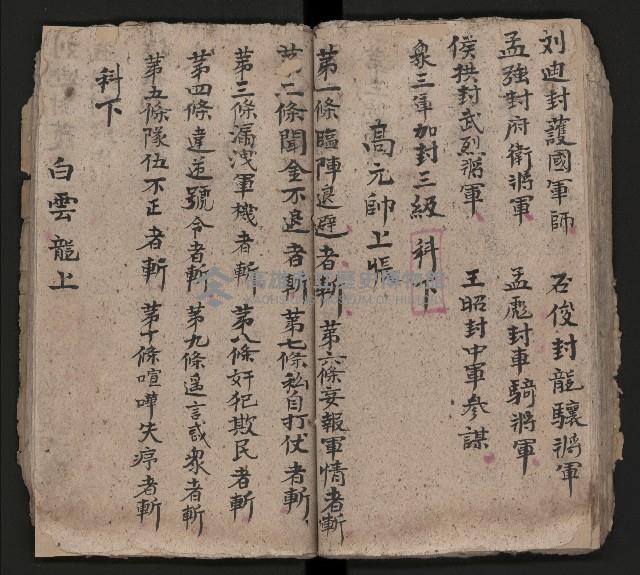 刘迪封護國軍師　石俊封龍驤將軍
孟強封府衛將軍　孟彪封車騎將軍
侯拱封武烈將軍　王昭封中軍參謀
衆三軍加封三級　科下
高元帥上帳
第一條臨陣退避者斬　第六條妄報軍情者斬
第二條聞金不退者斬　第七條私自打仗者斬
第三條漏洩軍機者斬　第八條奸犯欺民者斬
第四條違逆號令者斬　第九條遥言惑衆者斬
第五條隊伍不正者斬　第十條喧嘩失㾿者斬
科下
白雲龍上
高雄市立歷史博物館
KAOHSIUNG MUSEUM OF HISTORY